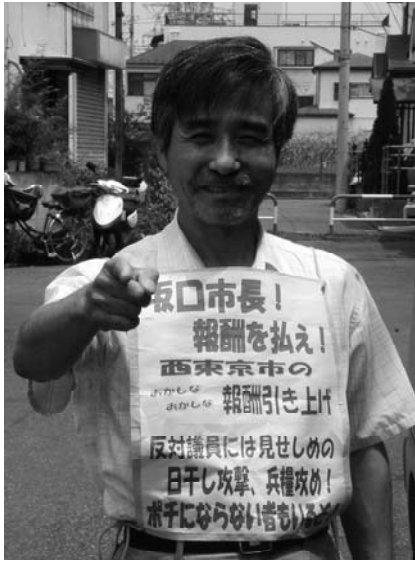 坂口市長!
報酬を払え!
西東京市の
おかしな
おかしな 報酬引き上げ
反対議員には見せしめの
日干し攻撃、兵糧攻め!
ポチにならない者もいるぞ!